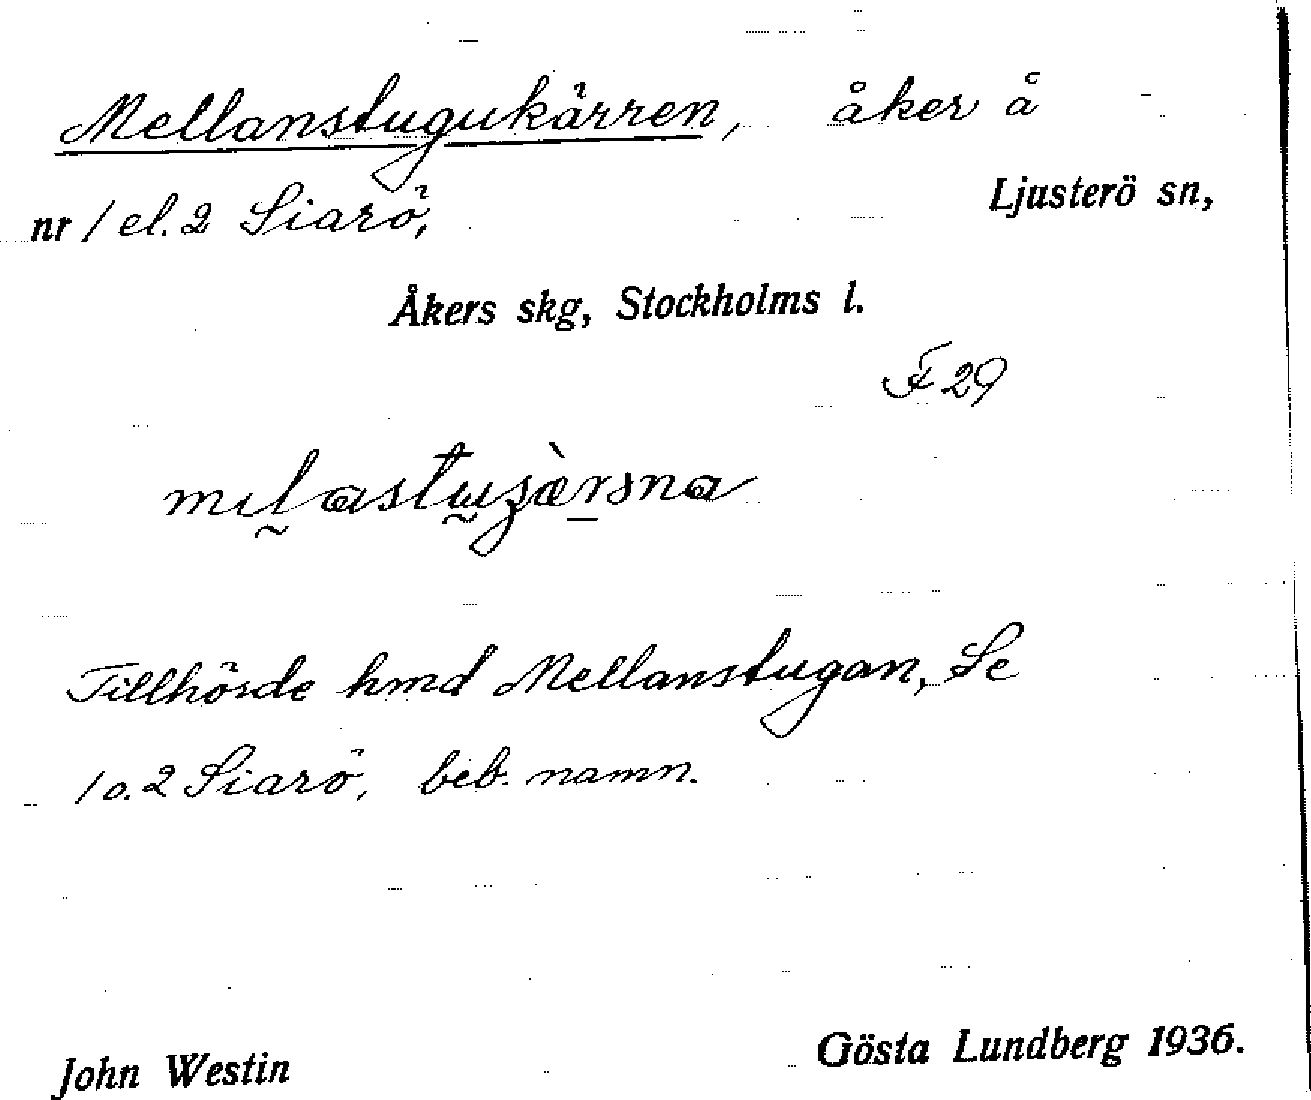 Mellanstugukärren, åker å
nr 1 el. 2 Siarö, Ljusterö sn,
Åkers skg, Stockholms l.
F 29
Tillhörde hmd Mellanstugan, Se
1 o. 2 Siarö, beb. namn.
John Westin Gösta Lundberg 1936.